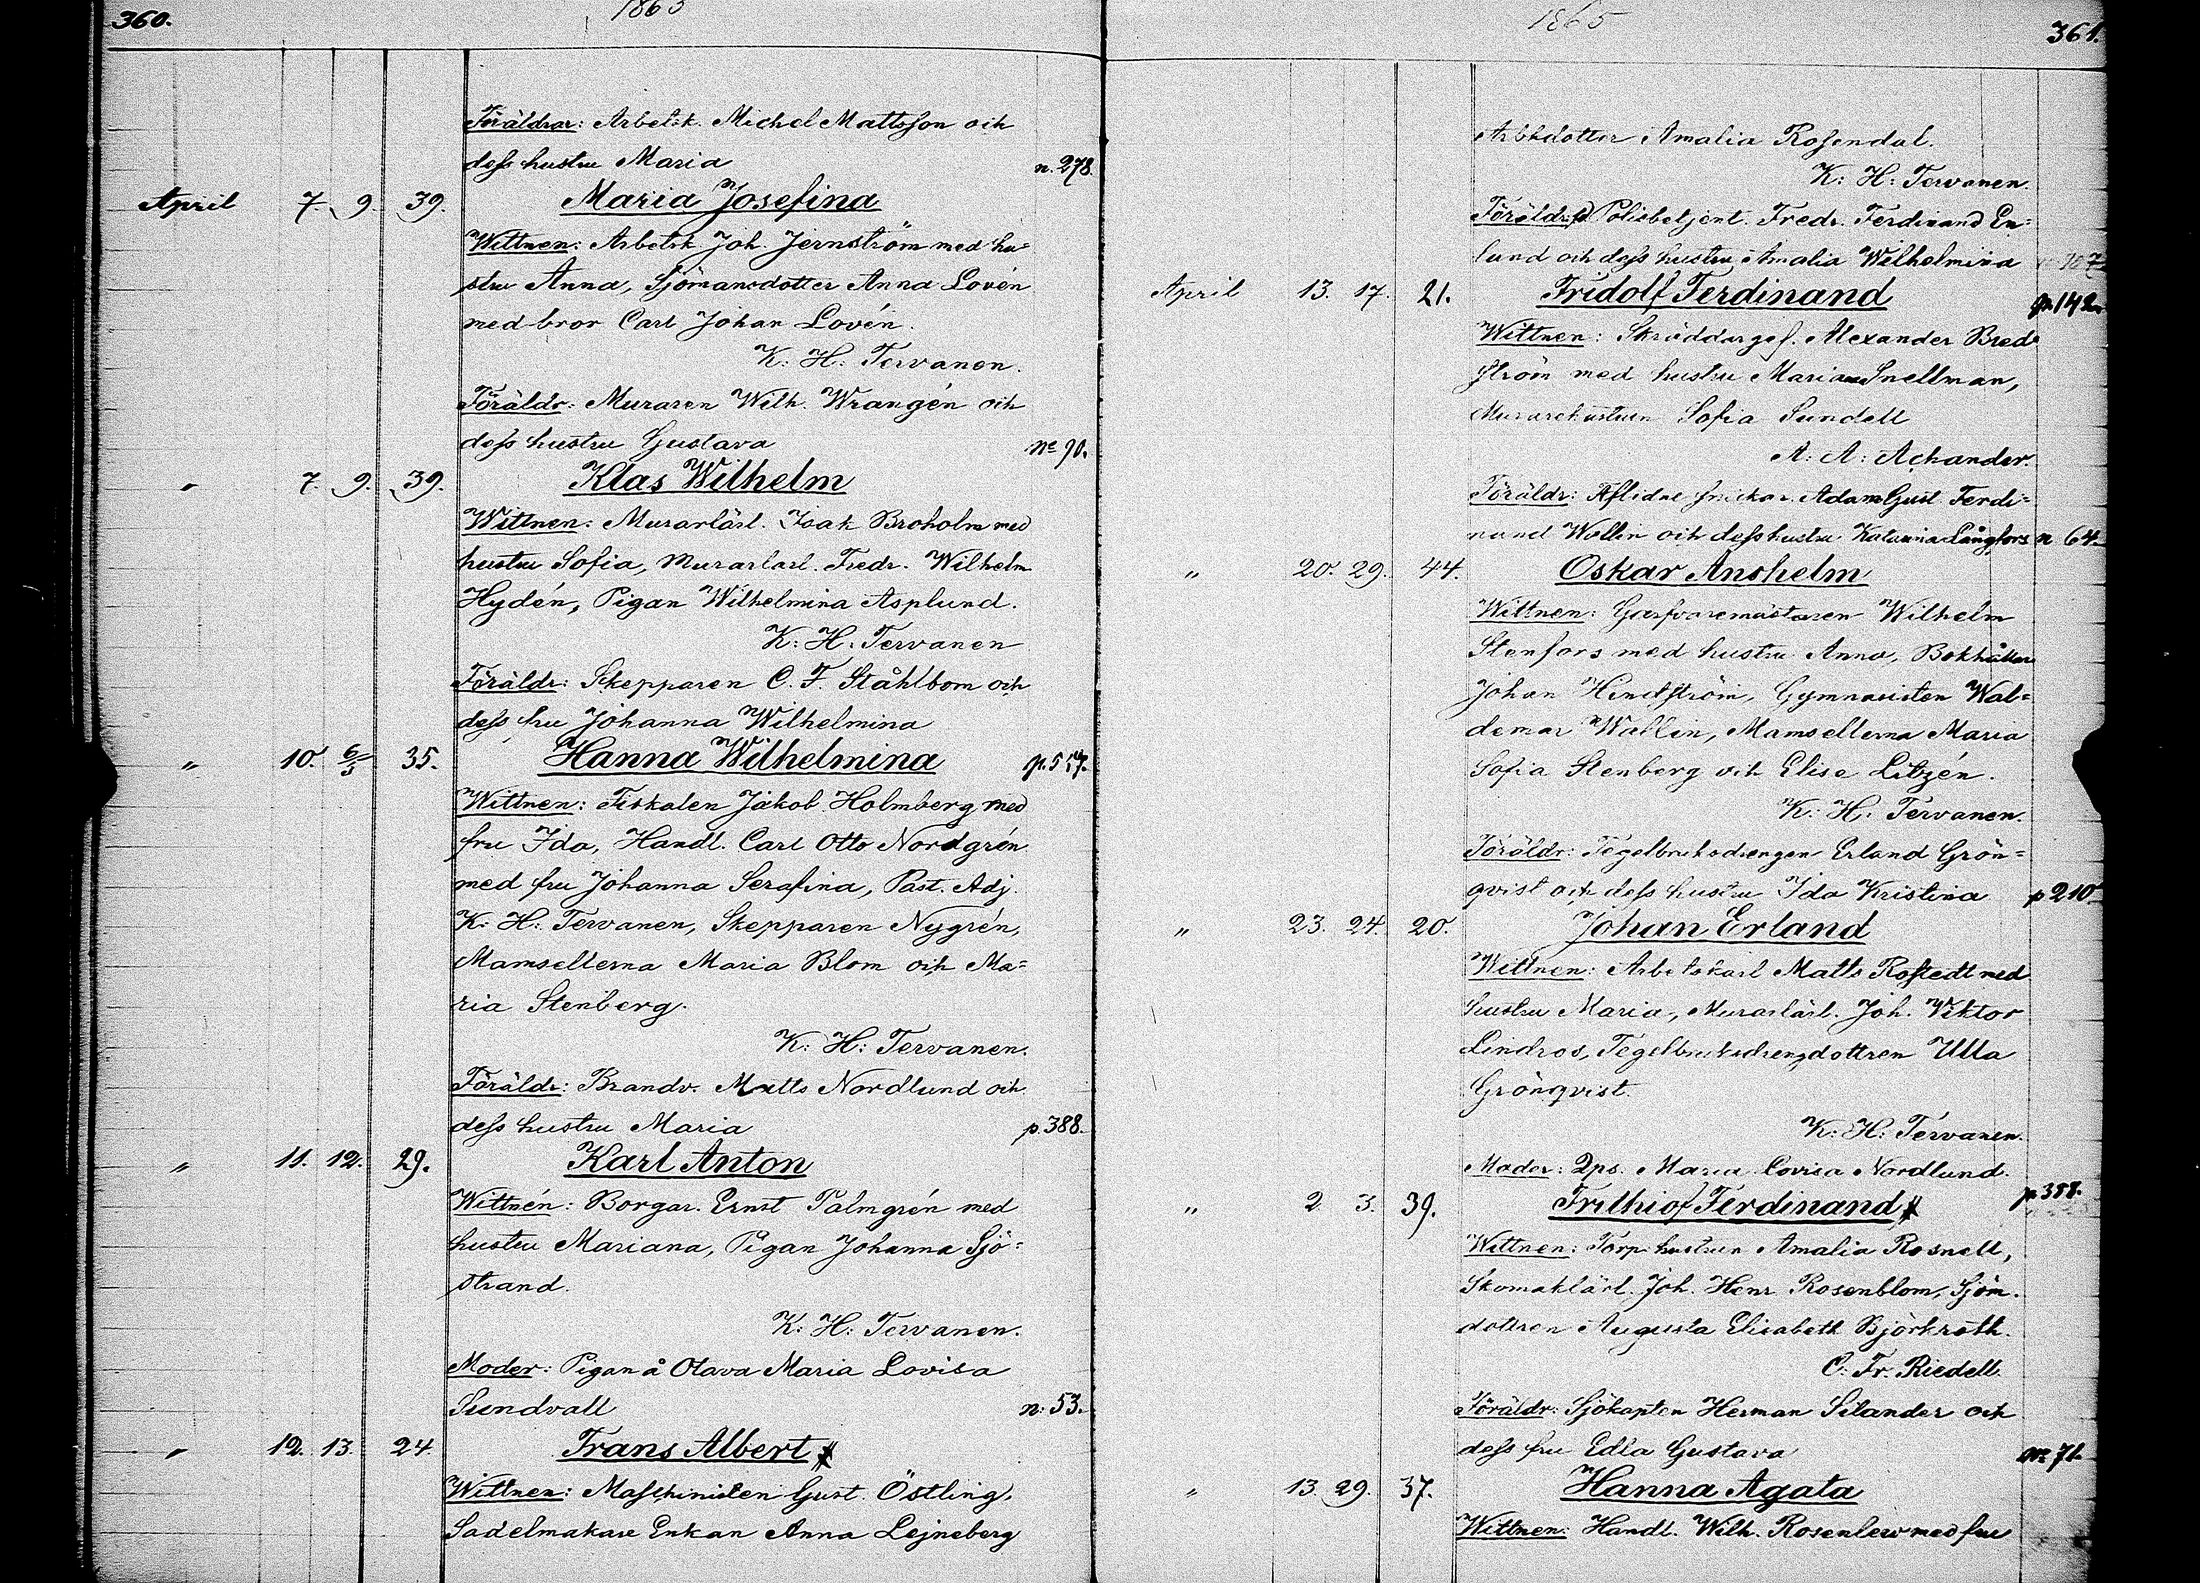 360.
1865
Föräldrar: Arbetsk. Michel Mattsson och
dess hustru Maria n. 278.
April 7. 9. 39. Maria Josefina
Wittnen: Arbetsk. Joh. Jernström med hu=
stru Anna, Sjömansdotter Anna Lovén
med bror Carl Johan Lovén.
K: H: Tervanen.
Föräldr: Muraren Wilh. Wrangén och
dess hustru Gustava n: 90.
" 7. 9. 39. Klas Wilhelm
Wittnen: Murarlärl. Isak Broholm med
hustru Sofia, Murarlärl. Fredr. Wilhelm
Hydén, Pigan Wilhelmina Asplund.
K: H: Tervanen
Föräldr: Skepparen C. F. Ståhlbom och
dess fru Johanna Wilhelmina
" 10. 6/5 35. Hanna Wilhelmina p. 557.
Wittnen: Fiskalen Jakob Holmberg med
fru Ida, Handl. Carl Otto Nordgrén
med fru Johanna Serafina, Past. Adj.
K: H: Tervanen, Skepparen Nygrén,
Mamsellerna Maria Blom och Ma=
ria Stenberg.
K: H: Tervanen.
Föräldr: Brandv. Matts Nordlund och
dess hustru Maria p. 388.
" 11. 12. 29. Karl Anton
Wittnen: Borgar. Ernst Palmgrén med
hustru Mariana, Pigan Johanna Sjö=
strand.
K: H: Tervanen.
Moder: Pigan å Otava Maria Lovisa
Sundvall n: 53.
" 12. 13. 24. Frans Albert
Wittnen: Maschinisten Gust. Östling,
Sadelmakare Enkan Anna Lejneberg
1865
361.
Arbkdotter Amalia Rosendal.
K: H: Tervanen.
Föräldr: Polisbetjent. Fredr. Ferdinand En=
lund och dess hustru Amalia Wilhelmina
April 13. 17. 21. Fridolf Ferdinand p. 142.
Wittnen: Skräddargef. Alexander Bred=
ström med hustru Maria Snellman,
Murarehustrun Sofia Sundell
A: A: Achander.
Föräldr: Aflidne snickar. Adam Gust Ferdi=
nand Wallin och dess hustru Katarina Långfors n 64.
" 20. 29. 44. Oskar Anshelm
Wittnen: Garfvaremästaren Wilhelm
Stenfors med hustru Anna, Bokhållar
Johan Hendström, Gymnasisten Wal=
demar Wallin, Mamsellerna Maria
Sofia Stenberg och Elise Litzén.
K: H: Tervanen.
Föräldr: Tegelbruksdrengen Erland Grön=
qvist och dess hustru Ida Kristina p 210.
" 23. 24. 20. Johan Erland
Wittnen: Arbetskarl Matts Rostedt med
hustru Maria, Murarlärl. Joh. Viktor
Lindros, Tegelbruksdrengdottren Ulla
Grönqvist.
K: H: Tervanen.
Moder: Qps. Maria Lovisa Nordlund.
" 2 3. 39. Frithiof Ferdinand p. 388.
Wittnen: Torp. hustrun Amalia Rosnell,
Skomaklärl. Joh. Henr. Rosenblom, Sjöm.
dottren Augusta Elisabeth Björkroth.
C: Fr. Riedell.
Föräldr: Sjökapten Herman Silander och
dess fru Edla Gustava n: 71.
" 13. 29. 37. Hanna Agata
Wittnen: Handl. Wilh. Rosenlew med fru